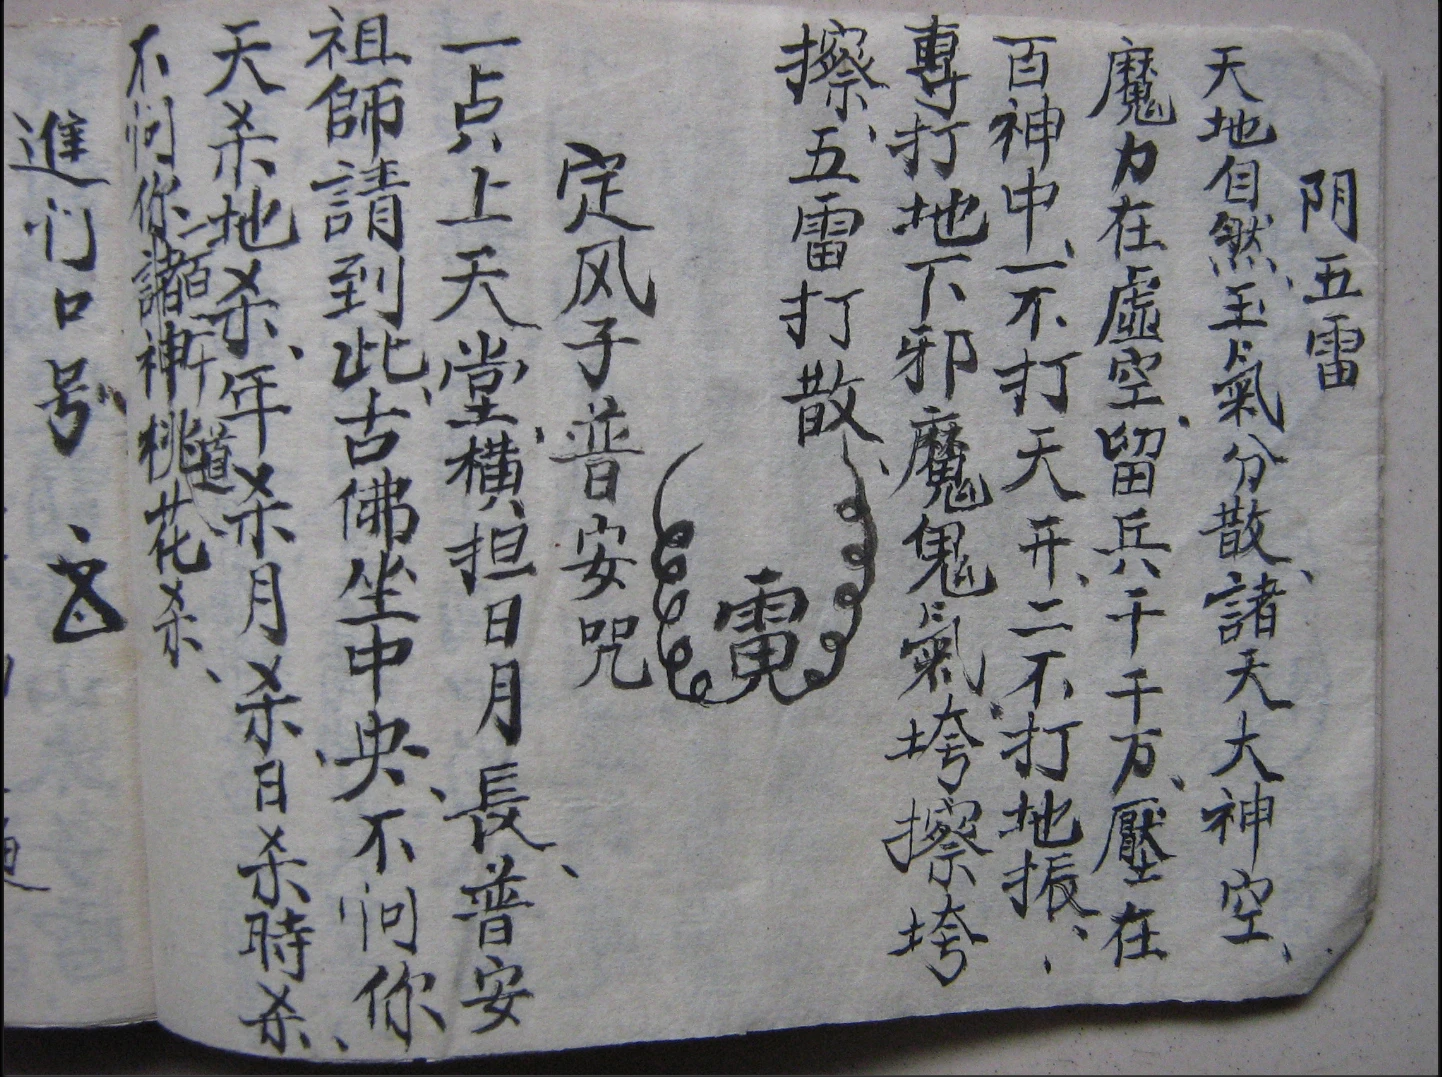 阴五雷
天地自然、玉氣分散、諸天大神空、
魔力在虛空、留兵千千万、壓在
百神中、一不打天开、二不打地振、
專打地下邪魔鬼氣、垮擦垮
擦、五雷打散、
雷
定风子普安咒
一点上天堂、横担日月長、普安
祖師請到此、古佛坐中央、不问你
天杀地杀、年杀月杀、日杀時杀、
不问你二百二十道諸神桃花杀、
進们口号